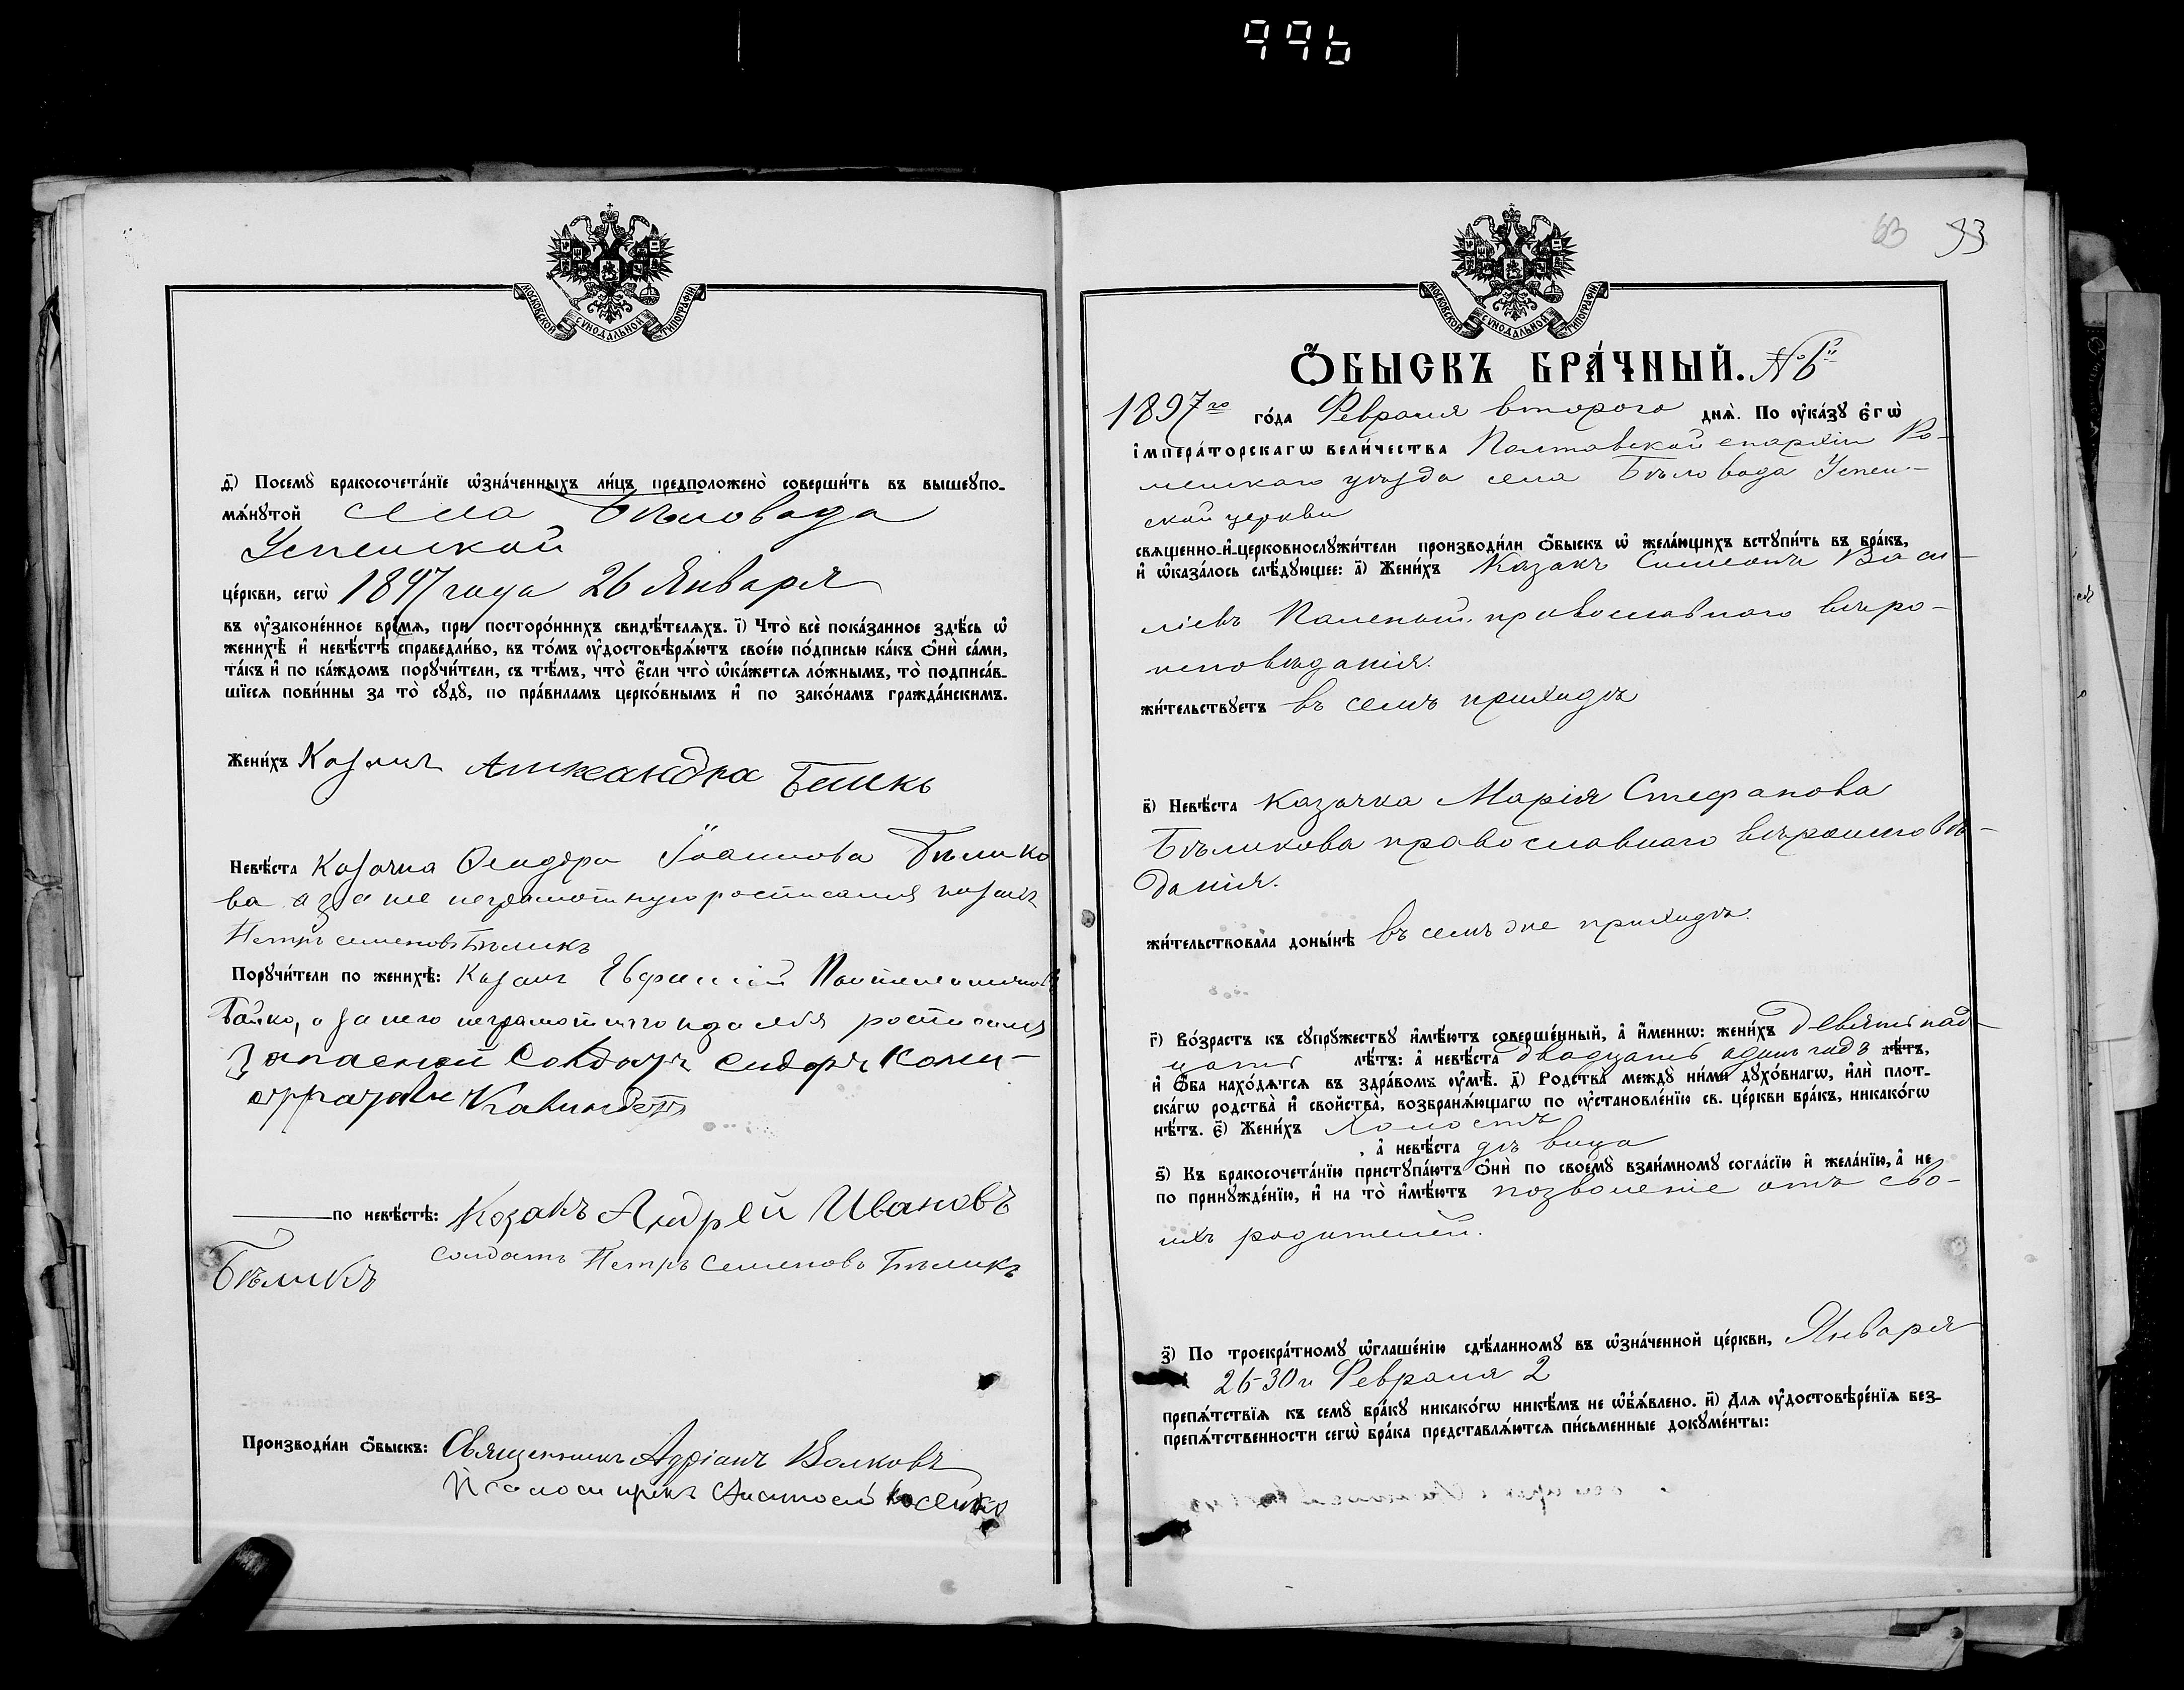 996
МОСКОВСКОЙ СѴНОДАЛЬНОЙ ТИПОГРАФІИ
д҃) Посемꙋ̀ бракосочета́нїе ѡ҆зна́ченныхъ ли́цъ предположено̀ соверши́ть въ вышеꙋпо-
мѧ́нꙋтой села Бѣловода
Успенской
це́ркви, сегѡ̀ 1897 года 26 Января
въ ᲂу҆законе́нное вре́мѧ, при посторо́ннихъ свидѣ́телѧхъ. і҃) Что̀ всѐ пока́занное здѣ́сь ѡ҆
женихѣ̀ и҆ невѣ́стѣ справедли́во, въ то́мъ ᲂу҆достовѣрѧ́ютъ свое́ю по́дписью ка́къ ѻ҆нѝ са́ми,
та́къ и҆ по ка́ждомъ порꙋчи́тели, съ тѣ́мъ, что̀ є҆́сли что̀ ѡ҆ка́жетсѧ ло́жнымъ, то̀ подписа́в-
шїесѧ пови́нны за то̀ сꙋдꙋ̀, по пра́виламъ церко́внымъ и҆ по зако́намъ гражда́нскимъ.
Жени́хъ Козакъ Александра Беликъ
Невѣ́ста Козачка Іоаннова Бѣлико
ва а за нее неграмотную росписался козакъ
Петръ Семеновъ Бѣликъ
Порꙋчи́тели по женихѣ̀: Козакъ Евфимій
Бойко, а за него неграмотного росписался
Запасной Солдатъ Сидоръ
по невѣ́стѣ: Козакъ Андрей Ивановъ
Бѣликъ солдатъ Петръ Семеновъ Бѣликъ
Производи́ли ѻ҆́быскъ: Священникъ Адріанъ Волковъ
Псаломщикъ Косенко
МОСКОВСКОЙ СѴНОДАЛЬНОЙ ТИПОГРАФІИ
63 93
Ѻ҆́БЫСКЪ БРА́ЧНЫЙ. № 6й
1897го го́да Февраля второго днѧ̀. По ᲂу҆ка́зꙋ є҆гѡ̀
і҆мпера́торскагѡ вели́чества Полтавской епархіи Ро-
менскаго уѣзда села Бѣловода Успен-
ской церкви
свѧщенно-и҆-церковнослꙋжи́тели производи́ли ѻ҆́быскъ ѡ҆ жела́ющихъ вступи́ть въ бра́къ,
и҆ ѡ҆каза́лось слѣ́дꙋющее: а҃) Жени́хъ Казакъ Симеонъ Васи-
ліевъ православного вѣро-
исповѣданія.
жи́тельствꙋетъ въ семъ приходѣ
в҃) Невѣ́ста казачка Марія Стефанова
Бѣликова православнаго вѣроисповѣ-
данія.
жи́тельствовала доны́нѣ въ семъ же приходѣ.
г҃) Во́зрастъ къ сꙋпрꙋжествꙋ и҆мѣ́ютъ соверше́нный, а҆ и҆́меннѡ: жени́хъ девятнад-
цать лѣ́тъ: а҆ невѣ́ста двадцать одинъ годъ лѣ́тъ,
и҆ ѻ҆́ба нахо́дѧтсѧ въ здра́вомъ ᲂу҆мѣ̀. д҃) Родства̀ междꙋ̀ ни́ми дꙋхо́внагѡ, и҆лѝ плот-
ска́гѡ родства̀ и҆ свойства̀, возбранѧ́ющагѡ по ᲂу҆становле́нїю св. це́ркви бра́къ, никако́гѡ
нѣ́тъ. є҃) Жени́хъ холостъ
, а҆ невѣ́ста дѣвица
ѕ҃) Къ бракосочета́нїю пристꙋпа́ютъ ѻ҆нѝ по своемꙋ̀ взаи́мномꙋ согла́сїю и҆ жела́нїю, а҆ не
по принꙋжде́нїю, и҆ на то̀ и҆мѣ́ютъ позволеніе отъ сво-
ихъ родителей.
з҃) По троекра́тномꙋ ѡ҆глаше́нїю сдѣ́ланномꙋ въ ѡ҆зна́ченной це́ркви, Января
26-30 и Февраля 2
препѧ́тствїѧ къ семꙋ̀ бра́кꙋ никако́гѡ никѣ́мъ не ѡ҆бѧ́влено. и҃) Для ᲂу҆достовѣре́нїѧ без-
препѧ́тственности сегѡ̀ бра́ка представлѧ́ютсѧ пи́сьменные докꙋме́нты: